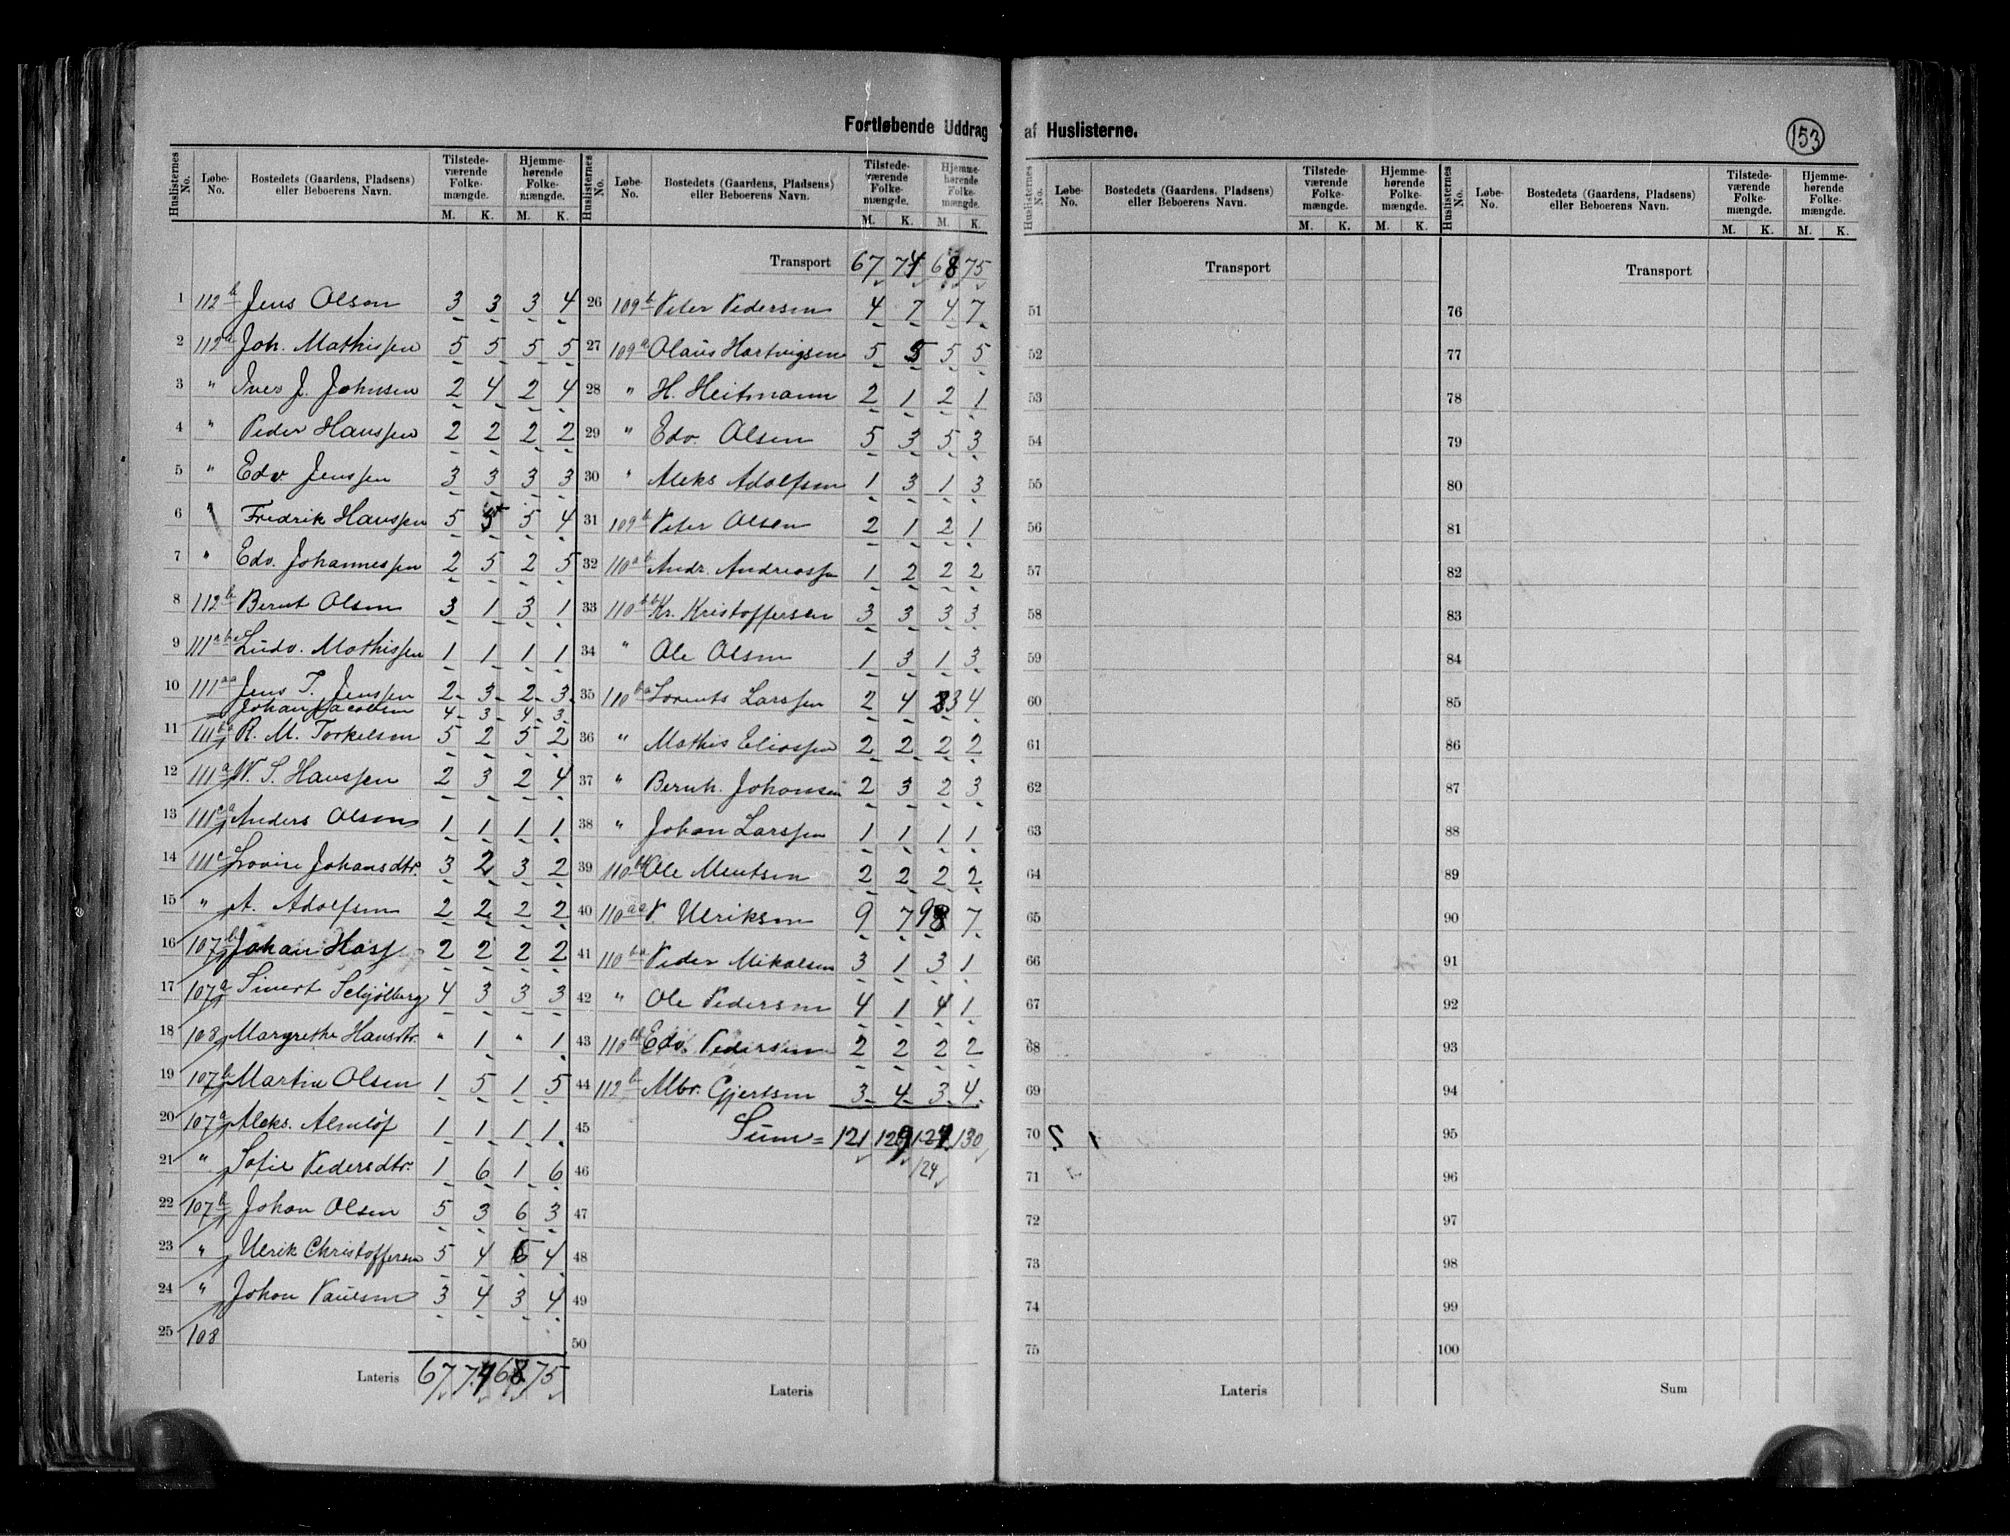 Fortløbende Uddrag af Huslisterne.
153
Huslisternes No. Løbe-No. Bostedets (Gaardens, Pladsens) eller Beboerens Navn. Tilstede-værende Folke-mængde. M. K. Hjemme-hørende Folke-mængde. M. K.
1 112b Jens Olsen 3 3 3 4
2 112a Joh. Mathissen 5 5 5 5
3 " Iver J. Johnsen 2 4 2 4
4 " Peder Hanssen 2 2 2 2
5 " Edv. Jenssen 3 3 3 3
6 " Fredrik Hanssen 5 5 4
7 " Edv. Johannessen 2 5 2 5
8 112b Bernt Olsen 3 1 3 1
9 111ab Ludv. Mathissen 1 1 1 1
10 111aa Jens T. Jenssen 2 3 2 3
Johan Jacobsen 4 3 4 3
11 111ba R. M. Torkelsen 5 2 5 2
12 111a W. S. Hanssen 2 3 2 4
13 111ca Anders Olsen 1 1 1 1
14 111c Lovise Johansdtr. 3 2 3 2
15 " A. Adolfsen 2 2 2 2
16 107b Johan Hast 2 2 2 2
17 107a Sivert Schjölberg 4 3 3 3
18 108 Margrethe Hansdtr. " 1 " 1
19 107b Martin Olsen 1 5 1 5
20 107a Aleks. Almlöf 1 1 1 1
21 " Sofie Pedersdtr. 1 6 1 6
22 107b Johan Olsen 5 3 6 3
23 " Ulrik Christoffersen 5 4 4
24 " Johan Paulsen 3 4 3 4
25 108
Lateris 67 74 68 75
Huslisternes No. Løbe-No. Bostedets (Gaardens, Pladsens) eller Beboerens Navn. Tilstede-værende Folke-mængde. M. K. Hjemme-hørende Folke-mængde. M. K.
Transport 67 74 68 75
26 109b Peter Pedersen 4 7 4 7
27 109a Olaus Hartvigsen 5 5 5 5
28 " H. Heitmann 2 1 2 1
29 " Edv Olsen 5 3 5 3
30 " Aleks Adolfsen 1 3 1 3
31 109b Peter Olsen 2 1 2 1
32 110ab Andr. Andreassen 1 2 2 2
33 110bb Kr. Kristoffersen 3 3 3 3
34 " Ole Olsen 1 3 1 3
35 110ba Lorents Larssen 2 4 3 4
36 " Mathis Eliassen 2 2 2 2
37 " Bernh. Johansen 2 3 2 3
38 " Johan Larssen 1 1 1 1
39 110bb Ole Mentsen 2 2 2 2
40 110aa P. Ulriksen 9 7 9 7
41 110ba Peder Mikalsen 3 1 3 1
42 " Ole Pedersen 4 1 4 1
43 110bb Edv. Pedersen 2 2 2 2
44 112b Mbr. Gjertsen 3 4 3 4
45 Sum = 121 129 124 130
46 124
47
48
49
50
Lateris
Huslisternes No. Løbe-No. Bostedets (Gaardens, Pladsens) eller Beboerens Navn. Tilstede-værende Folke-mængde. M. K. Hjemme-hørende Folke-mængde. M. K.
Transport
51
52
53
54
55
56
57
58
59
60
61
62
63
64
65
66
67
68
69
70
71
72
73
74
75
Lateris
Huslisternes No. Løbe-No. Bostedets (Gaardens, Pladsens) eller Beboerens Navn. Tilstede-værende Folke-mængde. M. K. Hjemme-hørende Folke-mængde. M. K.
Transport
76
77
78
79
80
81
82
83
84
85
86
87
88
89
90
91
92
93
94
95
96
97
98
99
100
Sum